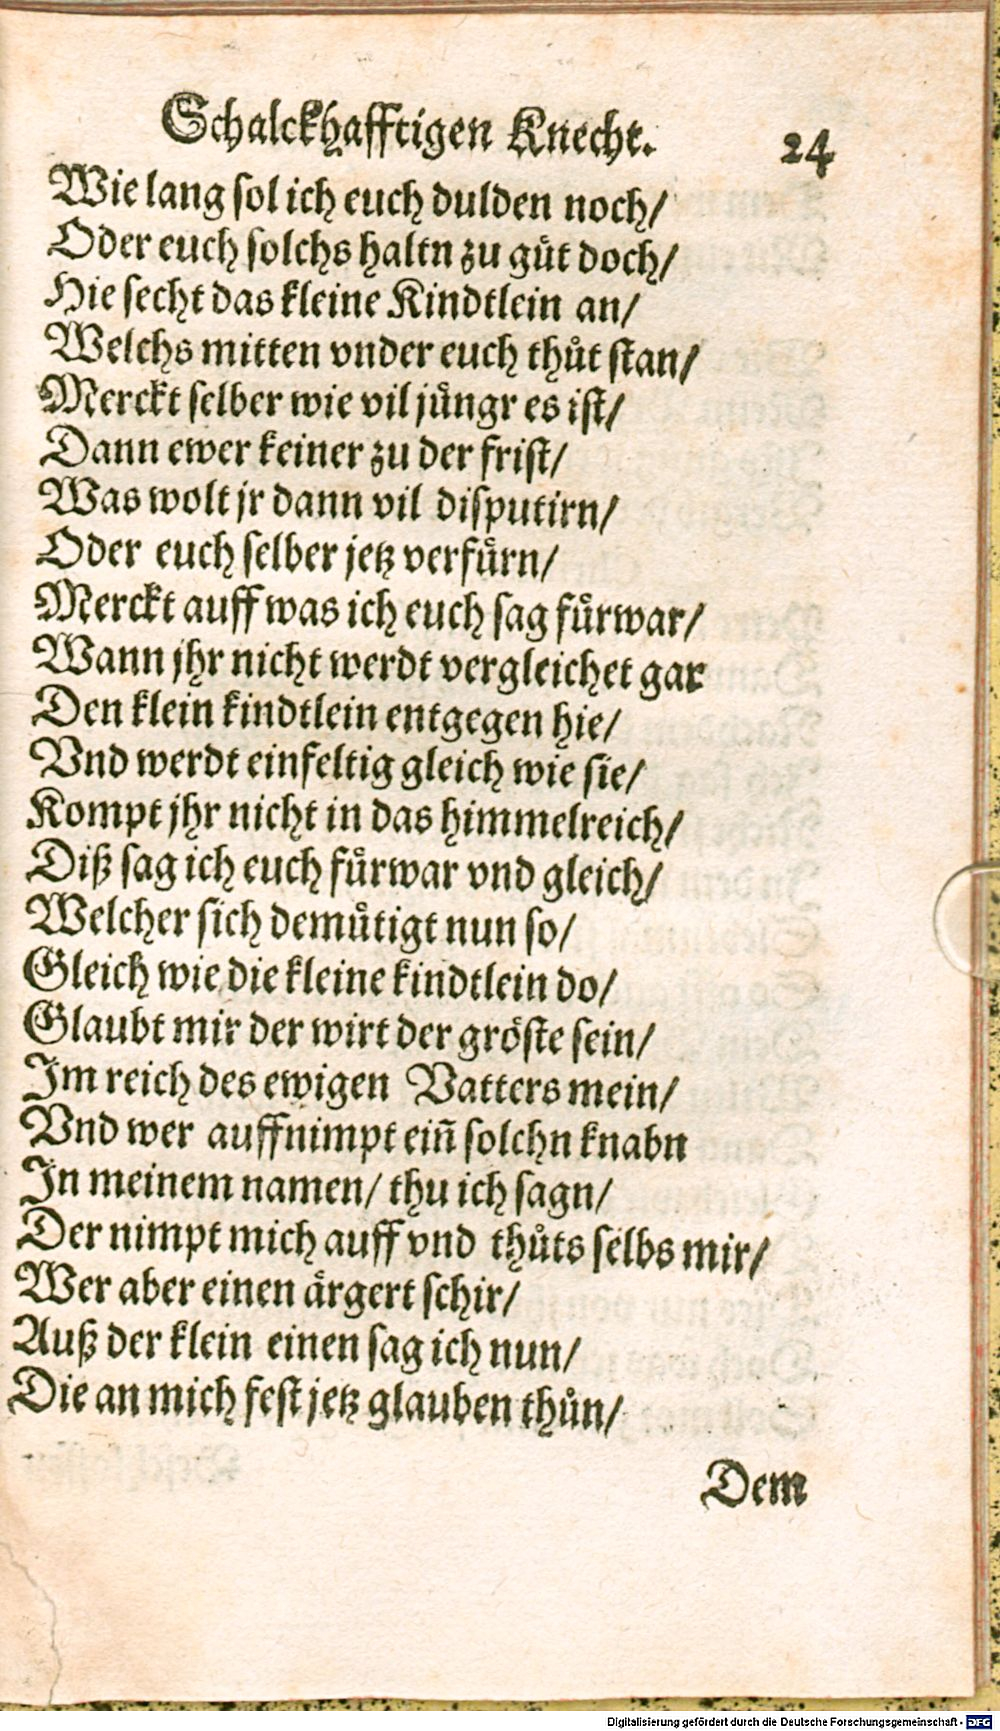 Schalckhafftigen Knecht. 24
Wie lang sol ich euch dulden noch/
Oder euch solchs haltn zu guͤt doch/
Hie secht das kleine Kindtlein an/
Welchs mitten vnder euch thuͦt stan/
Merckt selber wie vil juͤngr es ist/
Dann ewer keiner zu der frist/
Was wolt jr dann vil disputirn/
Oder euch selber jetz verfuͤrn/
Merckt auff was ich euch sag fuͤrwar/
Wann jhr nicht werdt vergleichet gar
Den klein kindtlein entgegen hie/
Vnd werdt einfeltig gleich wie sie/
Kompt jhr nicht in das himmelreich/
Diß sag ich euch fuͤrwar vnd gleich/
Welcher sich demuͤtigt nun so/
Gleich wie die kleine kindtlein do/
Glaubt mir der wirt der groͤste sein/
Im reich des ewigen Vatters mein/
Vnd wer auffnimpt ein̄ solchn knabn
In meinem namen/ thu ich sagn/
Der nimpt mich auff vnd thuͦts selbs mir/
Wer aber einen aͤrgert schir/
Auß der klein einen sag ich nun/
Die an mich fest jetz glauben thuͦn/
Dem
Digitalisierung gefördert durch die Deutsche Forschungsgemeinschaft - DFG